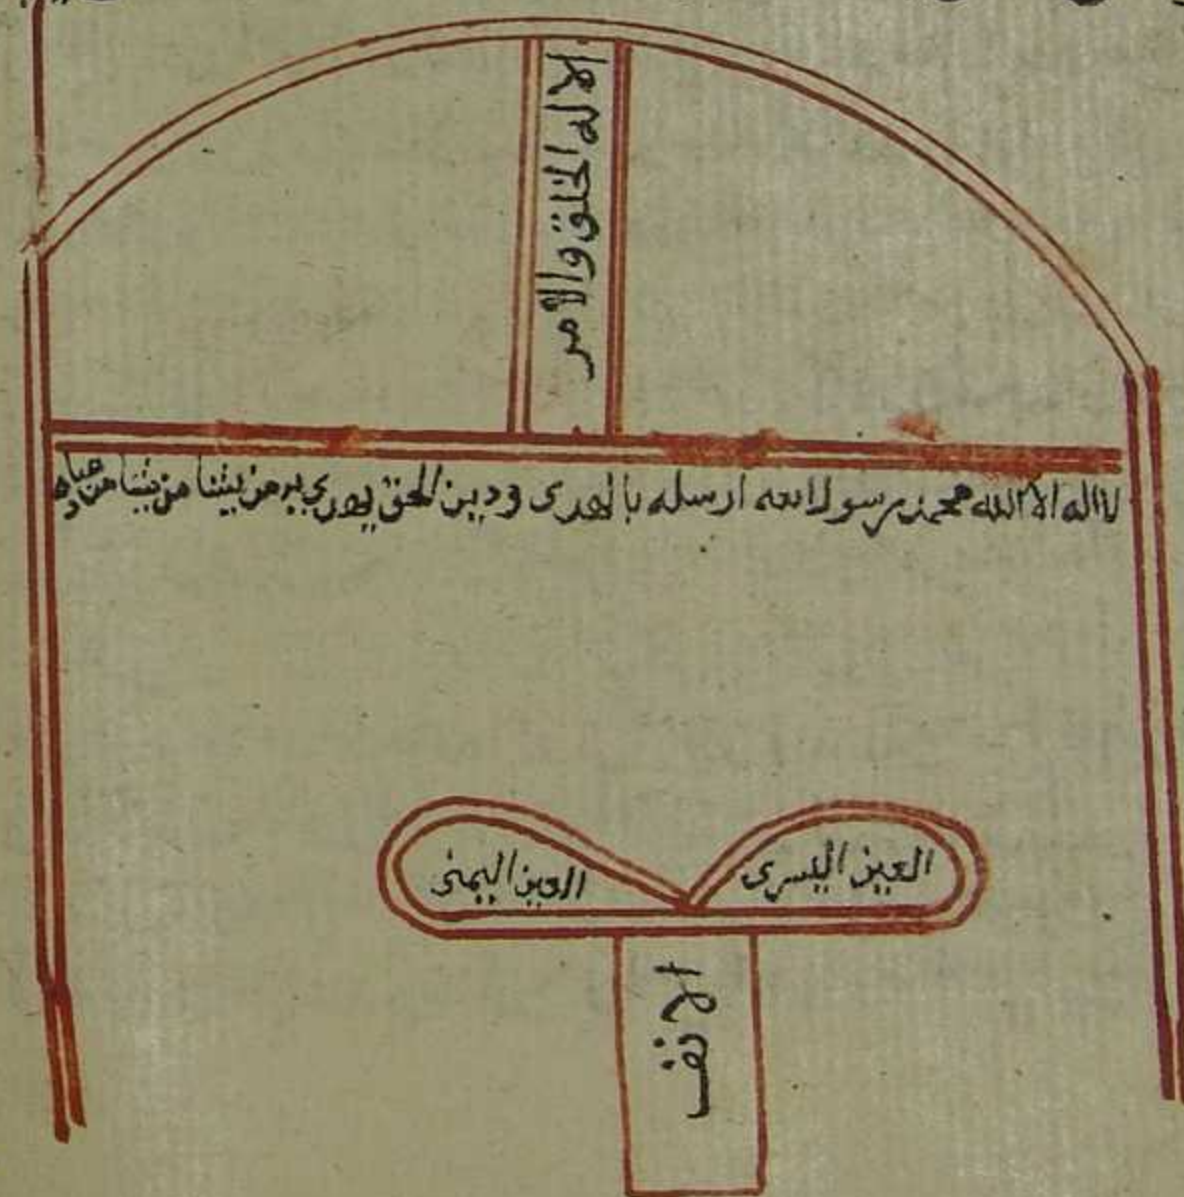 الا له الخلق والأمر
لا اله الا الله محمد رسول الله ارسله بالهدى ودين الحق يهدي به من يشا من يشا من عباده
العين اليسرى
العين اليمنى
الانف